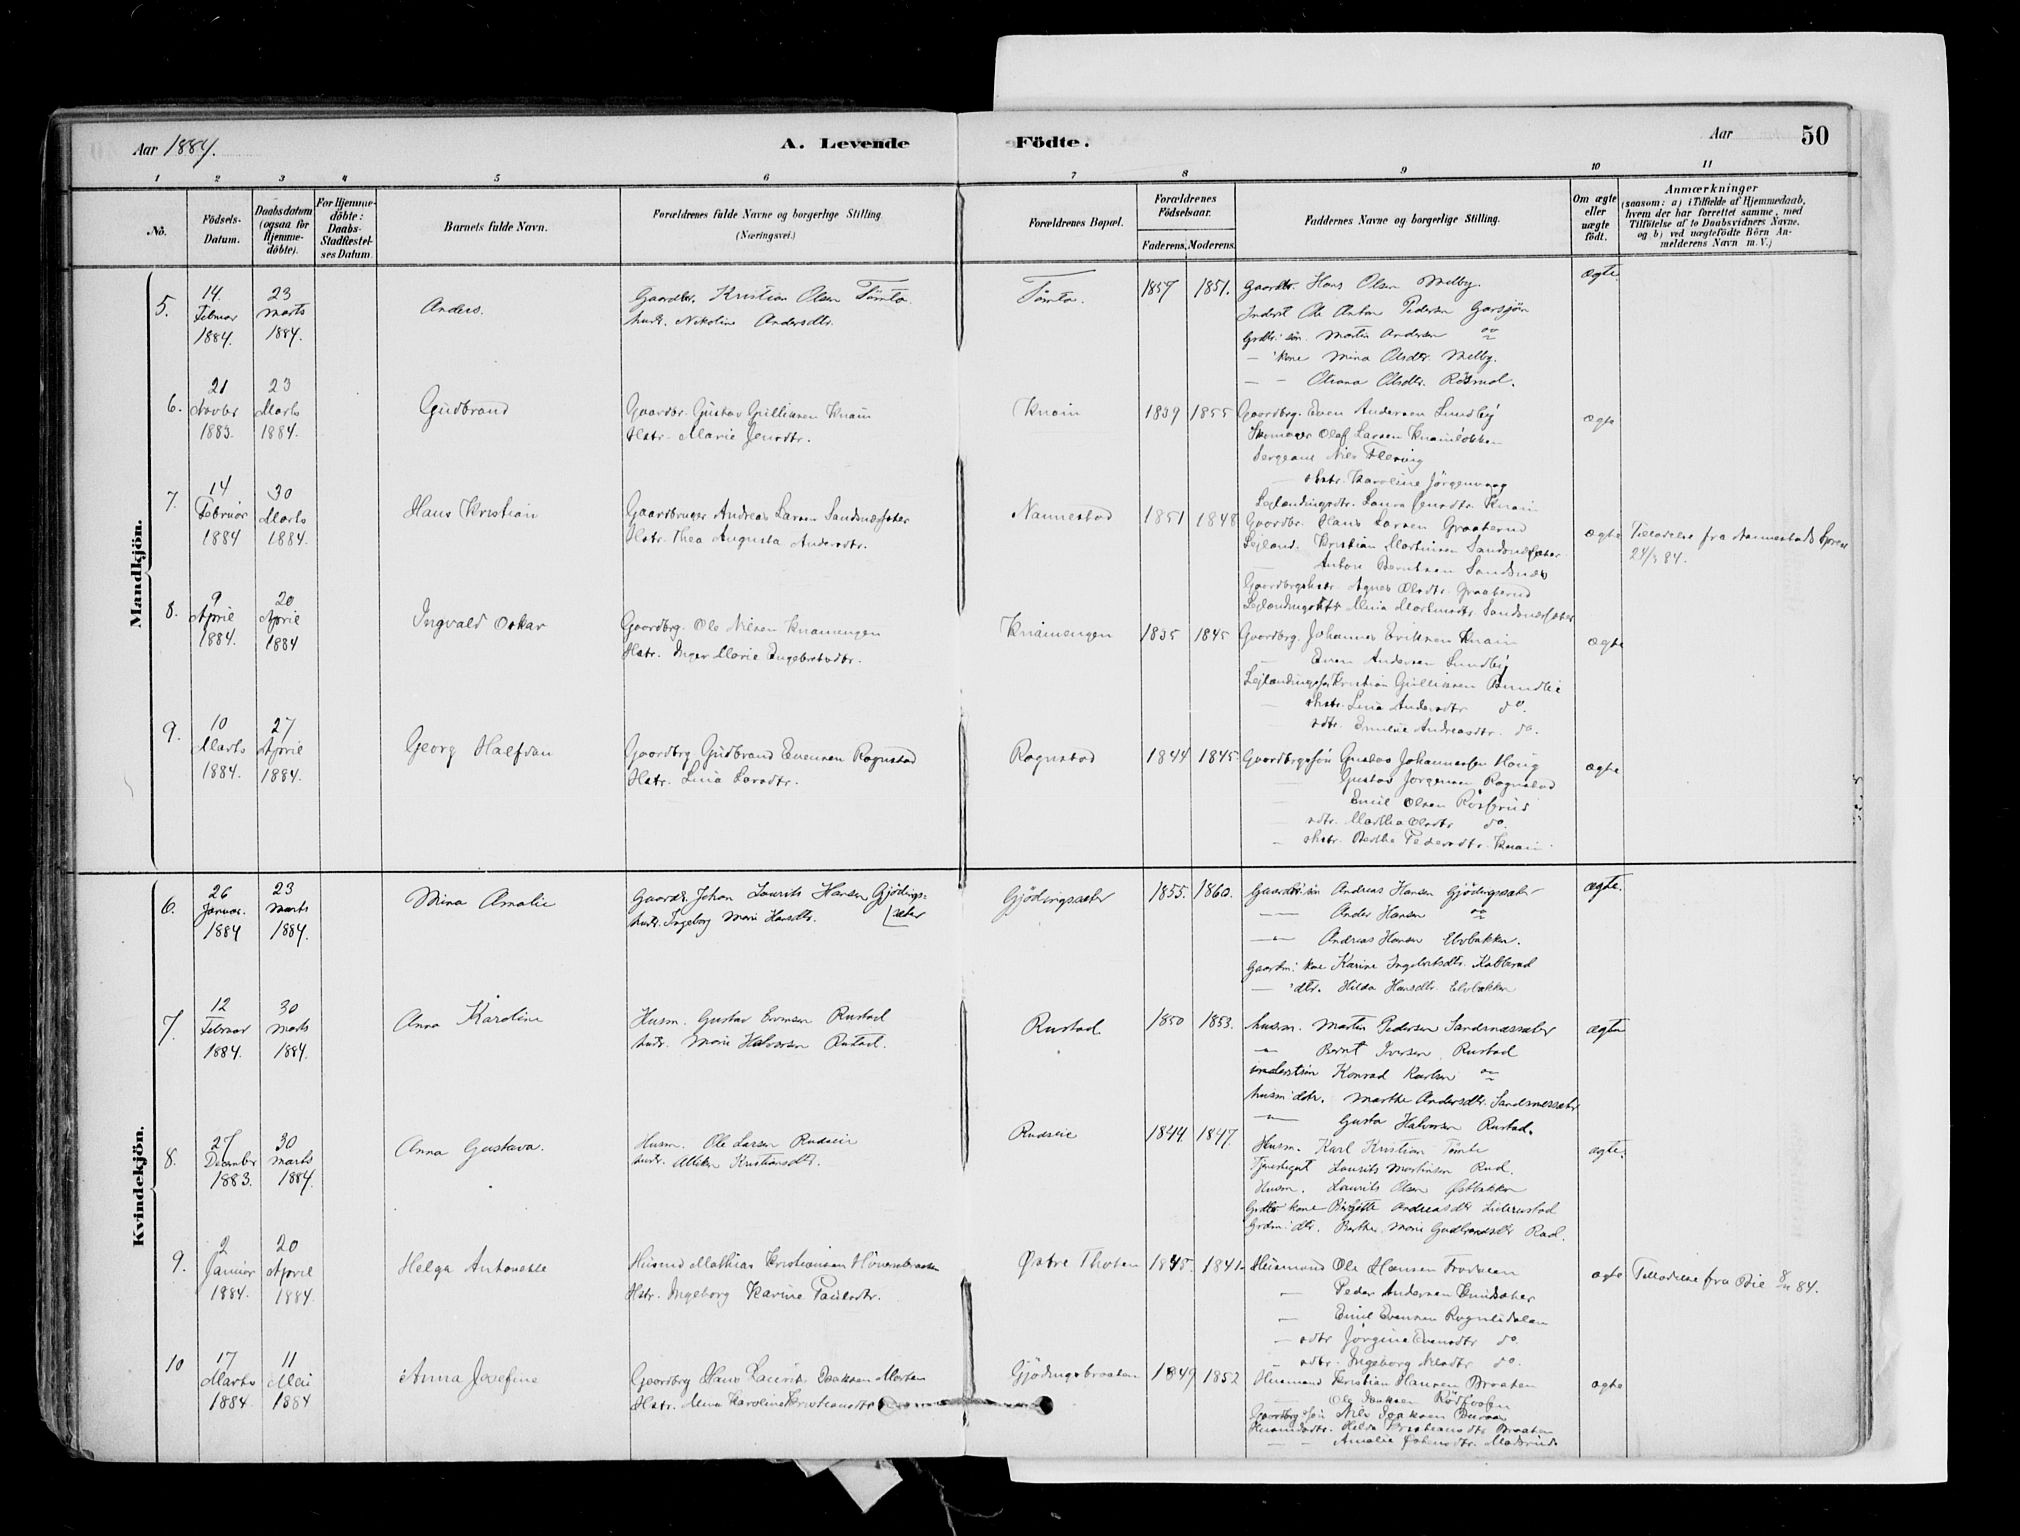 Aar 1884.
A. Levende Födte.
Aar
50
1 2 3 4 5 6 7 8 9 10 11
No.
Födsels-
Datum.
Daabsdatum
(ogsaa for
Hjemme-
döbte).
For Hjemme-
döbte:
Daabs-
Stadfæstel-
ses Datum
Barnets fulde Navn.
Forældrenes fulde Navne og borgerlige Stilling
(Næringsvei.)
Forældrenes Bopæl.
Forældrenes
Födselsaar.
Faderens. Moderens.
Faddernes Navne og borgerlige Stilling.
Om ægte
eller
uægte
födt.
Anmærkninger
(saasom: a) i Tilfælde af Hjemmedaab,
hvem der har forrettet samme, med
Tilföielse af to Daabsvidners Navne,
og b) ved uægtefödte Börn An-
melderens Navn m. V.)
Mandkjön.
5.
14.
Februar
1884.
23
Marts
1884.
Anders.
Gaardbr. Kristian Olsen Tömte
hustr. Nikoline Andersdtr.
Tömte.
1857 1851.
Gaardbr. Hans Olsen Melby.
Inderst Ole Anton Pedersen Garsjöen
Grdbr. sön. Martin Andersen do
— kone Mina Olsdtr. Melby.
— — Oleana Olsdtr.
ægte
6.
21
Novbr
1883.
23
Marts
1884.
Gudbrand
Gaardbr. Gustav Gulliksen Knain
Hstr. Marie Jensdtr.
Knain
1839 1855
Gaardbrg. Even Andersen Lundby
Skomager Olaf Larsen Knainlökken
Sergeant Niels Flesvig
— shstr. Karoline Jörgensen
Lejlændingsdtr. Laura Jensdtr. Knain
ægte
7.
14
Februar
1884
30
Marts
1884.
Hans Kristian
Gaardbruger Andreas Larsen Sandsnæssæter
Hstr. Thea Augusta Andersdtr.
Nannestad
1851 1848
Gaardbr. Hans Larsen Graaberud
Lejlænd. Kristian Martinsen Sandsnæssæter
— Anton Berntsen Sandsnæs
Gaardbrgshstr. Agnes Olsdtr. Graaberud
Lejlændingsdtr. Mina Martinsdtr. Sandsnæssæter
ægte
Tilladelse fra Nannestads Spræst
24/3 84.
8.
9
April
1884.
20
April
1884
Ingvald Oskar
Gaardbrg. Ole Nilsen Knainengen
Hstr. Inger Marie Engebretsdtr.
Knainengen
1835 1845
Gaardbrg. Johannes Eriksen Knain
— Even Andersen Lundby
Lejlændingssön Kristian Gulliksen
— shstr. Lina Andersdtr do.
— sdtr. Emilie Andreasdtr. do.
ægte
9.
10
Marts
1884.
27
April
1884.
Georg Halfdan
Gaardbrg. Gudbrand Evensen Rognstad
Hstr. Lina Larsdtr.
Rognstad
1844 1845.
Gaardbrgssön Gustav Johannessen Haug
— Gustav Jörgensen Rognstad
— Emil Olsen
— sdtr. Martha Olsdtr do.
— shstr. Berthe Pedersdtr. Knain
ægte
Kvindekjön.
6.
26
Januar.
1884
23
Marts
1884.
Mina Amalie
Gaardbr. Johan Laurits Hansen Gjödings-
sæter
hustr. Ingeborg Marie Hansdtr.
Gjödingsæter
1855. 1860.
Gaardbr. sön Andreas Hansen Gjödingsæter
— Anders Hansen do
— Andreas Hansen Elvbakken.
Gaardm. kone Karine Ingebretsdtr. Kalberud
— dtr. Hilda Hansdtr. Elvbakken
ægte.
7.
12
Februar
1884.
30
Marts
1884.
Anna Karoline
Husm. Gustav Evensen Rustad
hustr. Marie Halvorsen Rustad.
Rustad
1850 1853.
husm. Martin Pedersen Sandsnæssæter
" Bernt Iversen Rustad
inderstsön Konrad Karlsen do
husm. dtr. Marthe Andersdtr. Sandsnæssæter
" Gusta Halvorsen Rustad.
ægte
8.
27
December
1883.
30
Marts
1884.
Anna Gustava.
Husm. Ole Larsen Rudseie
hustr. Kristiansdtr.
Rudseie
1844 1847.
Husm. Karl Kristian Tömte
Tjenestegut Laurits Martinsen Rud.
Husm. Laurits Olsen Östbakken
Grdbr. kone Birgitte Andreasdtr
Grdm. dtr. Berthe Marie Gudbrandsdtr Rud.
ægte.
9.
2
Januar
1884.
20
April
1884.
Helga Antonette
Husmd Mathias Kristiansen
Hstr. Ingeborg Karine Paulsdtr.
Östre Thoten
1848. 1841.
Husmand Ole Hansen
— Peder Andersen
— Emil Evensen Rognlidalen
— sdtr Jörgine Evensdtr do
— sdtr. Ingeborg Nilsdtr do.
ægte
Tilladelse fra 84.
10
17
Marts
1884
11
Mai
1884
Anna Josefine
Gaardbrg Hans Laurits Isaksen
Hstr. Mina Karoline Kristiansdtr
Gjödingsbraaten
1849 1852
Husmand Kristian Hansen Braaten
— Ole Isaksen
Gaardbrgssön Nils Isaksen
Husmdsdtr. Hilda Kristiansdtr Braaten
— — Amalie
ægte